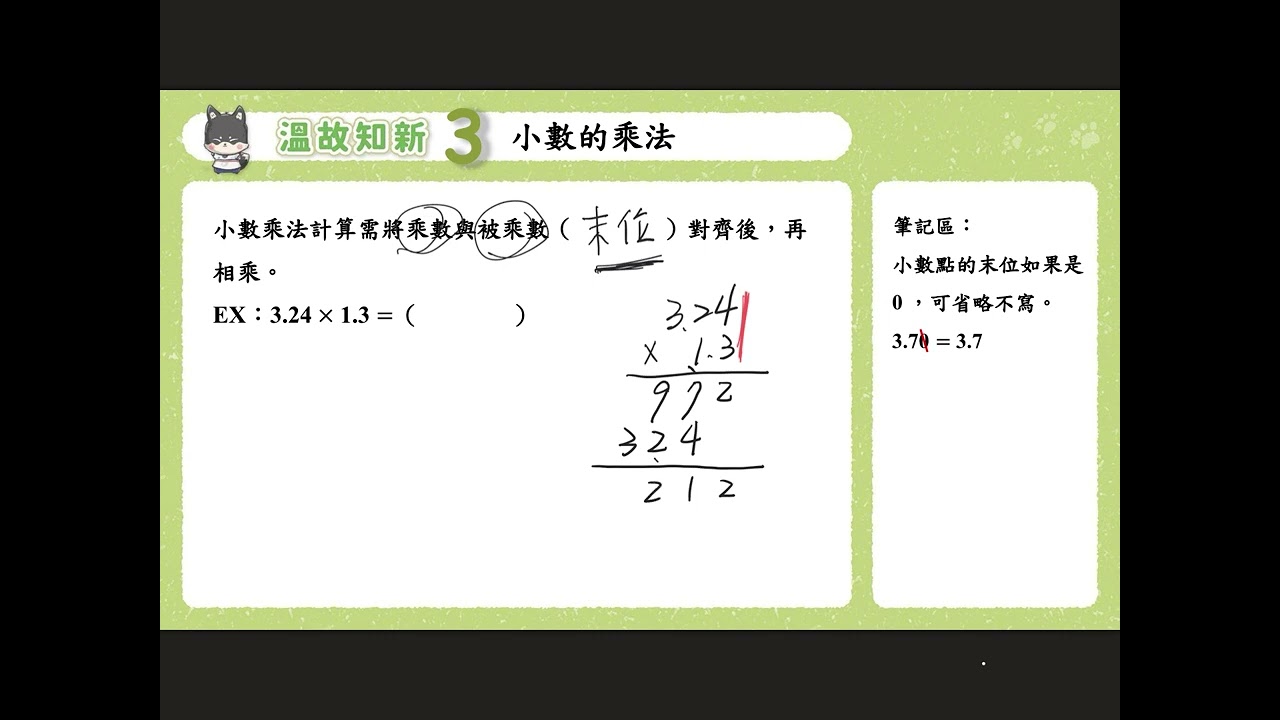 溫故知新 3 小數的乘法
小數乘法計算需將乘數與被乘數（末位）對齊後，再
相乘。
EX：3.24 × 1.3 =（ ）
3.24
× 1.3
972
324
212
筆記區：
小數點的末位如果是
0 ，可省略不寫。
3.70 = 3.7